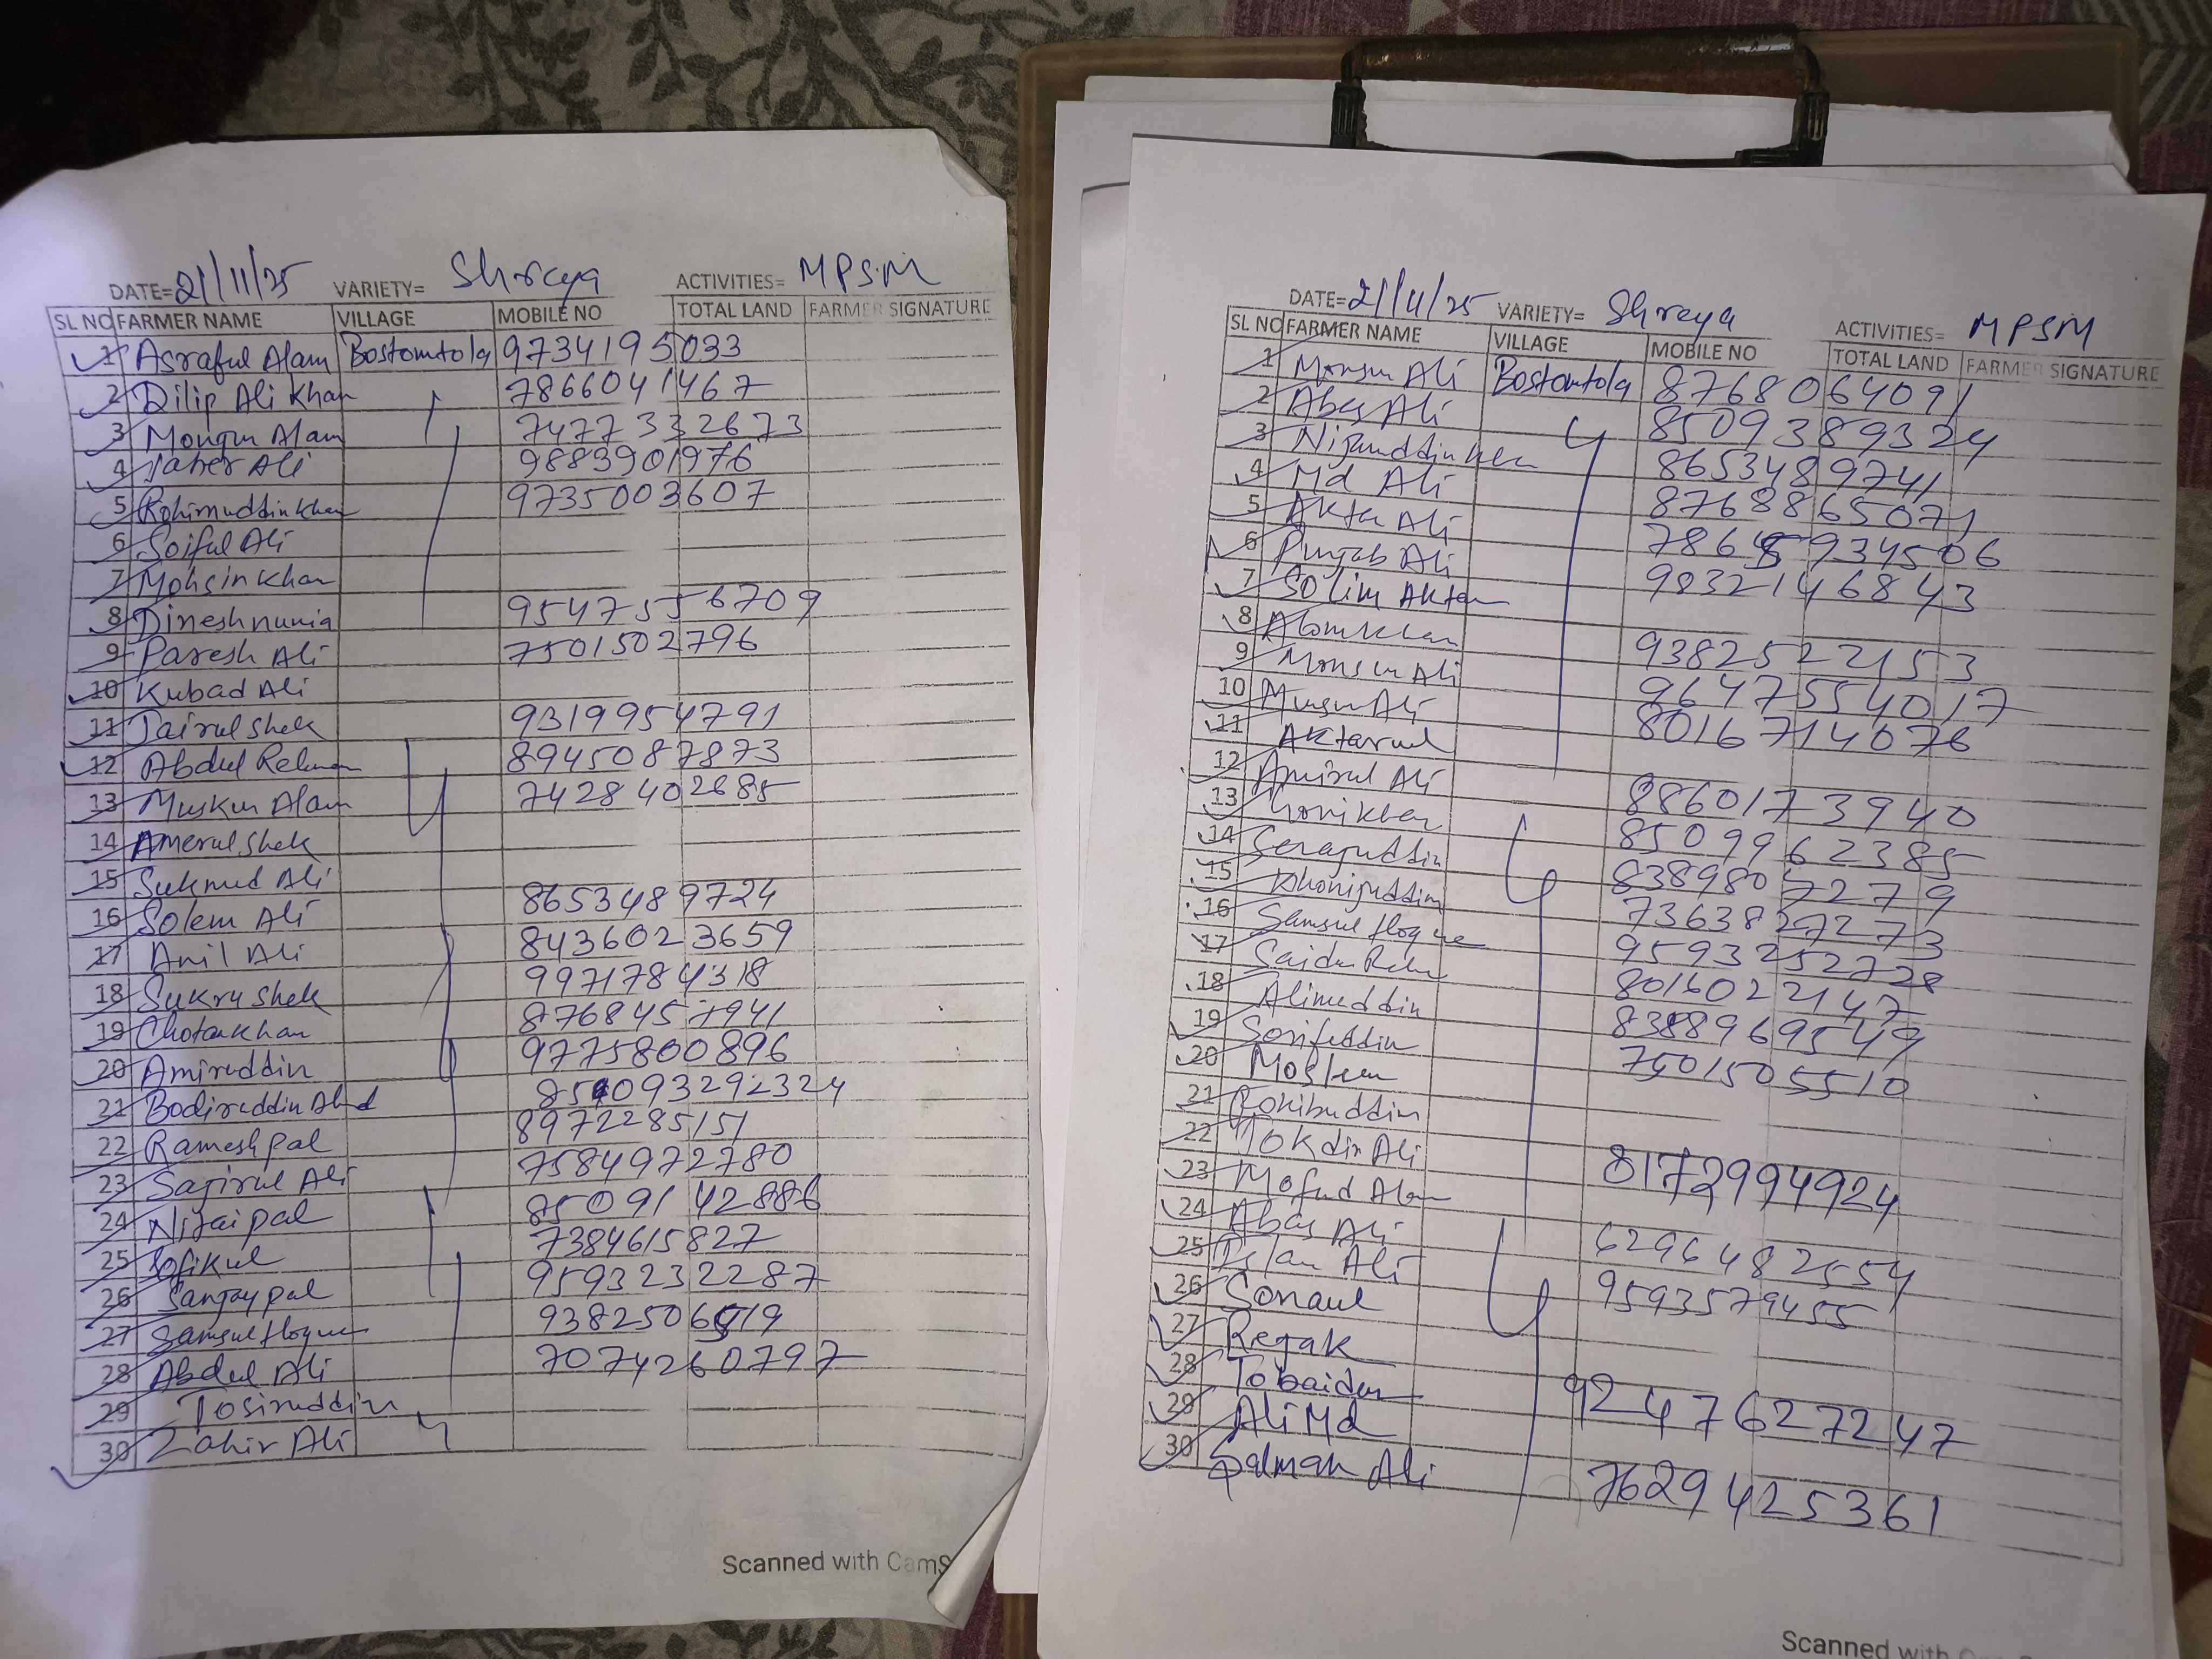 DATE= 21/11/25 VARIETY= Shreya ACTIVITIES= MPSM
SL NO FARMER NAME VILLAGE MOBILE NO TOTAL LAND FARMER SIGNATURE
1 Asraful Alam Bostomtola 9734195033
2 Dilip Ali Khan 7866041467
3 Alam 7477332673
4 Taher Ali 9883901976
5 Rohimuddin Khan 9735003607
6 Soiful Ali
7 Mohsin Khan
8 Dinesh nunia 9547556709
9 Paresh Ali 7501502796
10 Kubad Ali
11 Jairul Shek 9319954791
12 Abdul Rehman 8945087873
13 Muskur Alam 7428402685
14 Amerul Shek
15 Ali
16 Solem Ali 8653489724
17 Anil Ali 8436023659
18 Sukru Shek 9971784318
19 Chotankhan
20 Amiruddin 9775800896
21 Bodiruddin
22 Ramesh pal 8972285151
23 Sajirul Ali 7584972780
24 Nitai pal 8509142886
25 Tofikul 7384615827
26 Sanjoy pal 9593232287
27 Samsul Hoque
28 Abdul Ali 7074260797
29 Tosiruddin
30 Zahir Ali
Scanned with CamS
DATE= 21/11/25 VARIETY= Shreya ACTIVITIES= MPSM
SL NO FARMER NAME VILLAGE MOBILE NO TOTAL LAND FARMER SIGNATURE
1 Monsur Ali Bostomtola 8768064091
2 Abas Ali 8509389324
3 Nijamuddin 8653489741
4 Md Ali 8768865071
5 Aktar Ali
6 Punjab Ali 9832146843
7 Solim Aktar
8 Alom Khan 9382522153
9 Monsur Ali 9647554017
10 Ali 8016714076
11 Aktarul
12 Amirul Ali 8860173940
13 8509962385
14 Serajuddin 8389807279
15 7363827273
16 Samsul Hoque 9593252728
17 8016022147
18 Alimuddin
19 Sorifuddin 7501505510
20 Moslem
21 Rohibuddin
22 Tokdir Ali 8172994924
23 Mofud Alam
24 Abas Ali 6296482554
25 Islam Ali 9593579455
26 Sonaul
27 Rejak
28 Tobaidur 9247627247
29 Ali Md
30 Salman Ali 7629425361
Scanned with